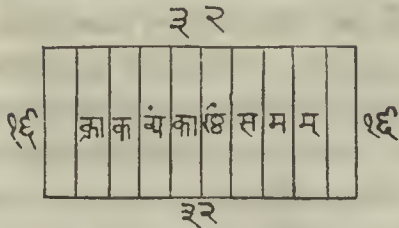 ३२
१६ क्रा क च्यं का ष्ठ स म म् १६
३२